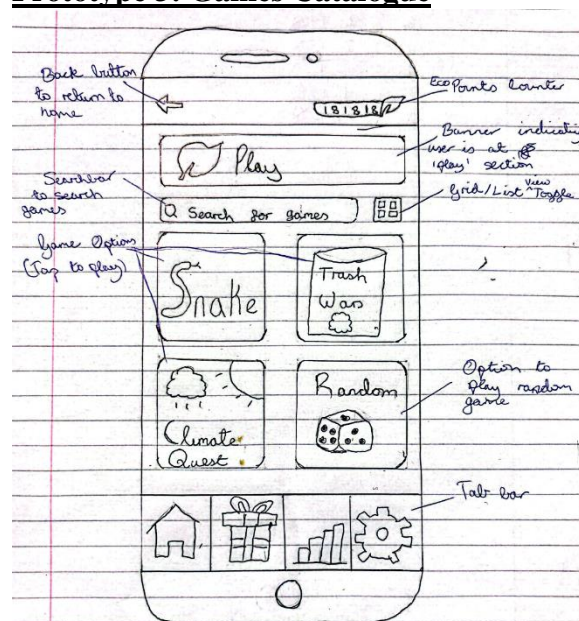 Prototype 3: Games Catalogue
Back button
to return to
home
EcoPoints Counter
181818
Banner indicating
user is at
'play' section
Play
Searchbar
to search
games
Search for games
Grid/List view Toggle
Game Options
(Tap to play)
Snake
Trash
Wars
Climate
Quest
Random
Option to
play random
game
Tab bar